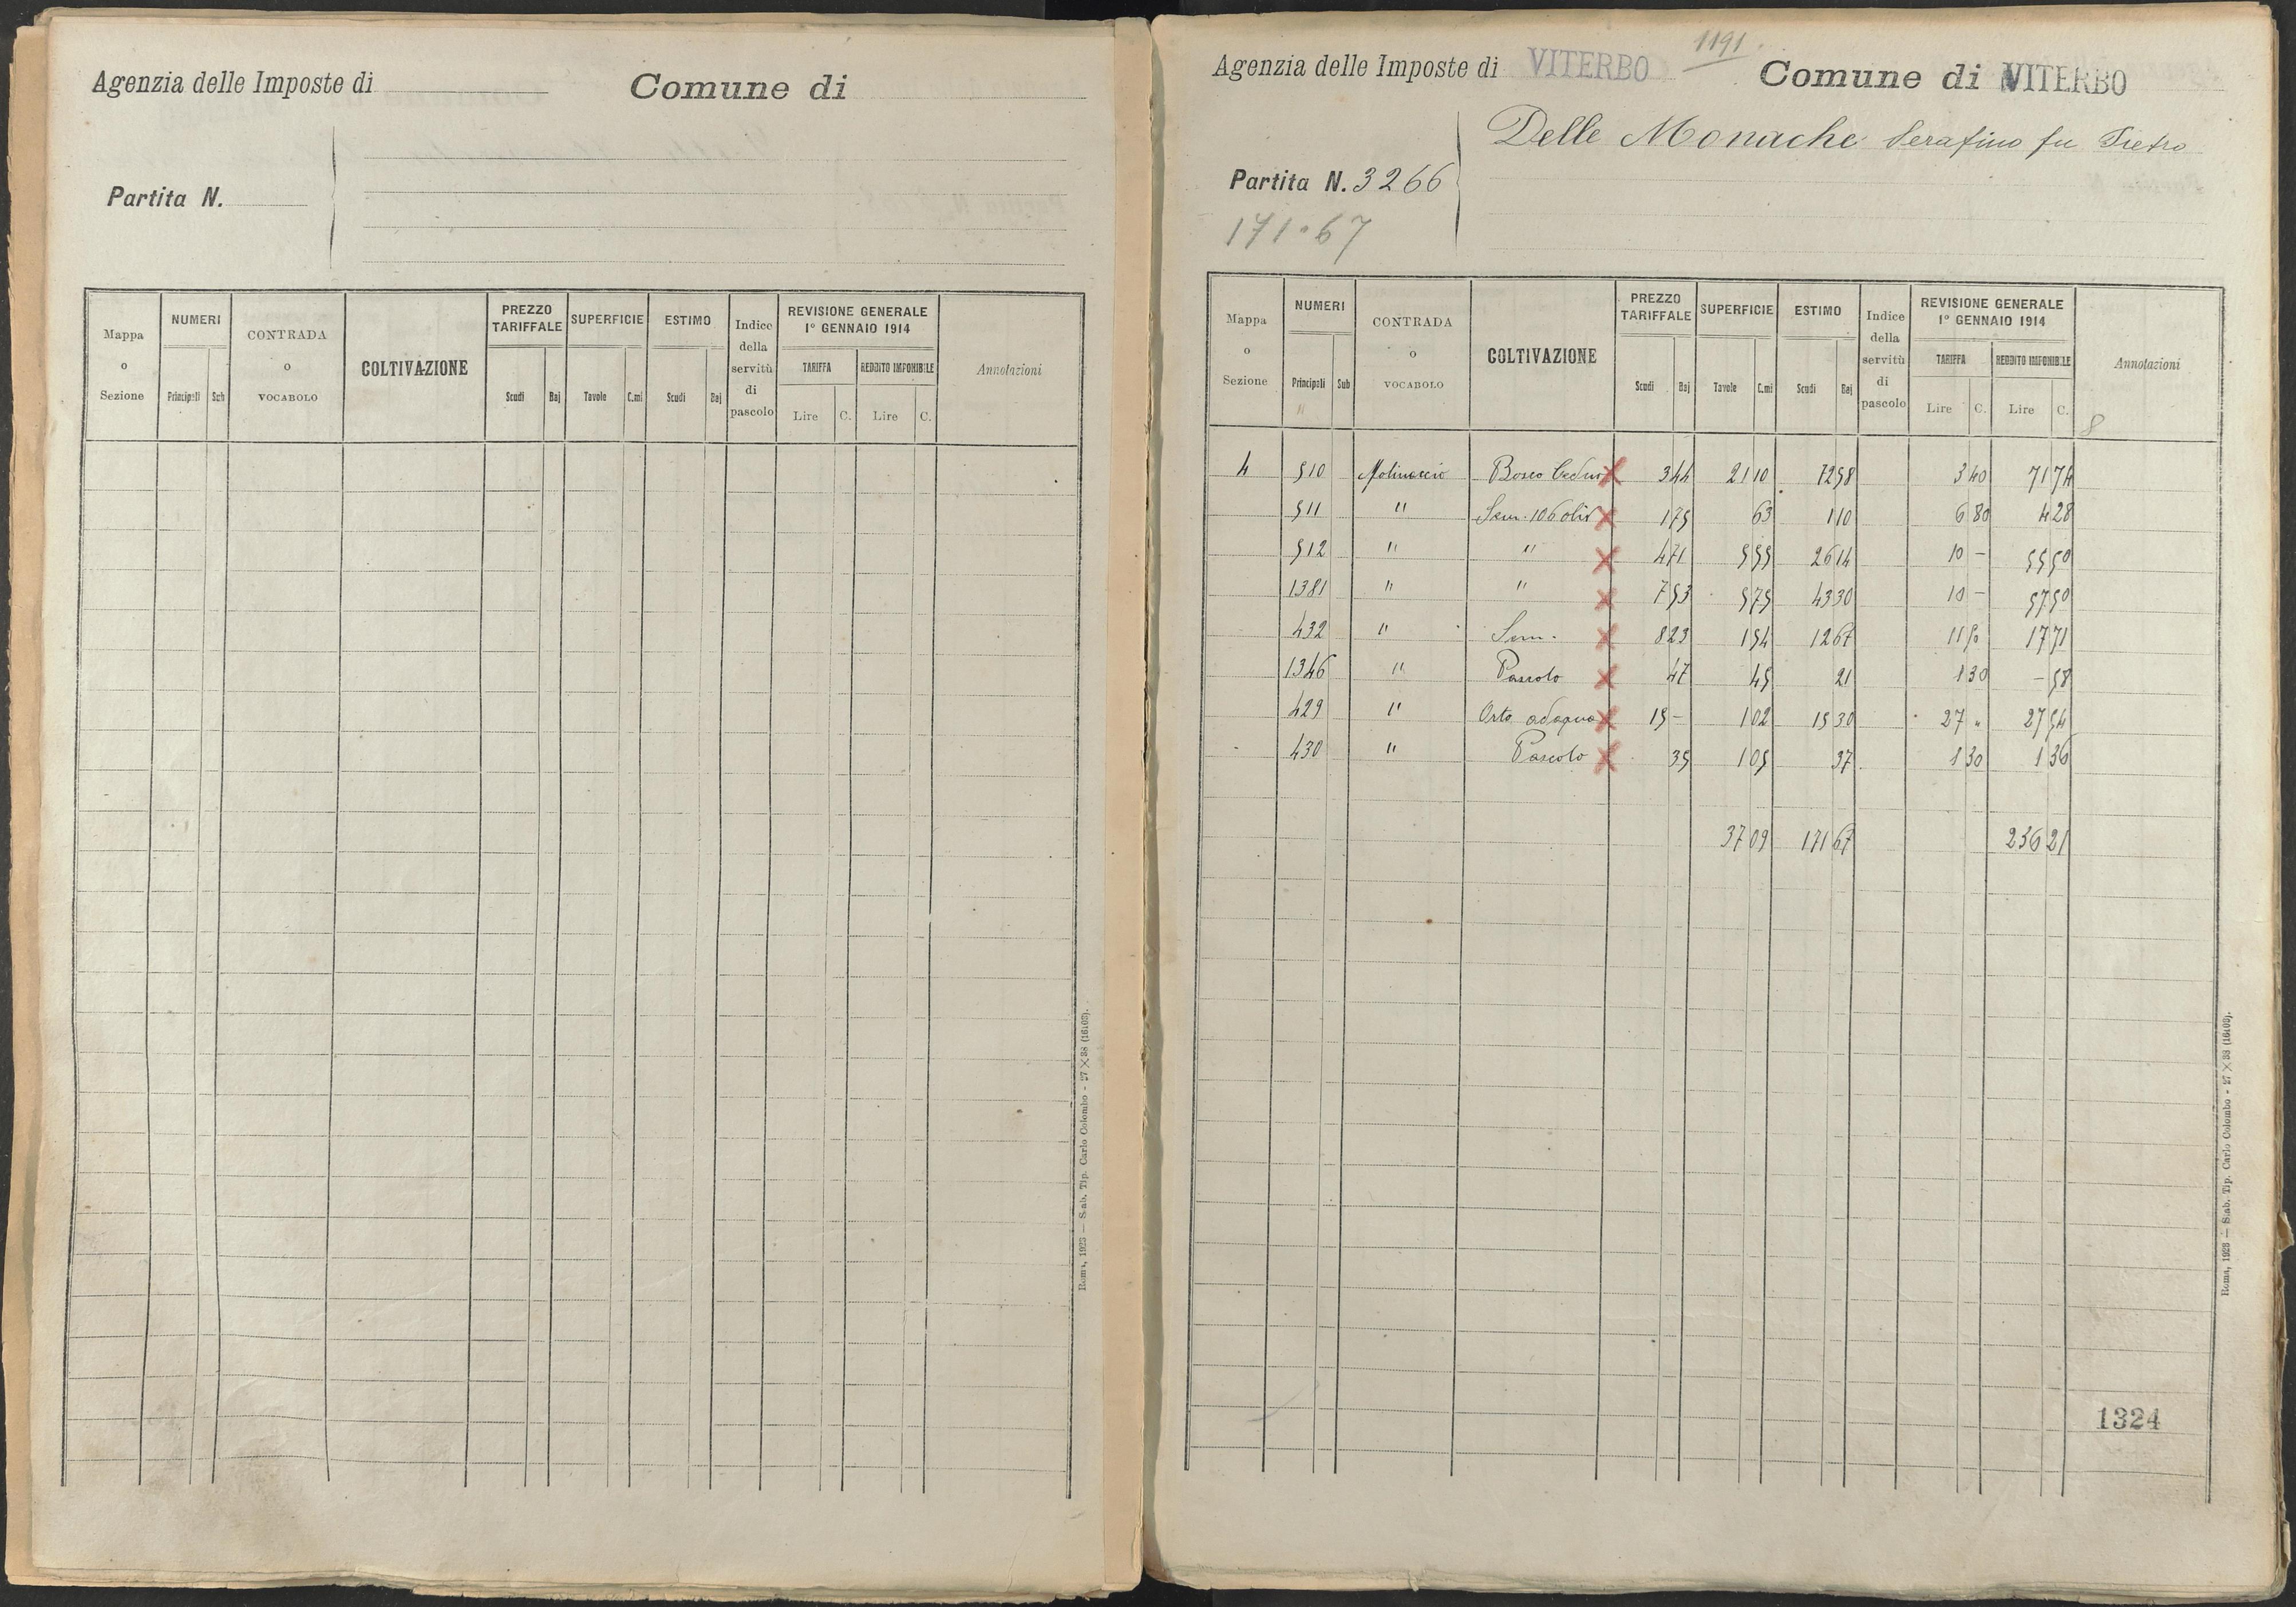 Agenzia delle Imposte di
Comune di
Partita N.
Mappa o Sezione
NUMERI
Principali Sch
CONTRADA o VOCABOLO
COLTIVAZIONE
PREZZO TARIFFALE
Scudi Baj
SUPERFICIE
Tavole C.mi
ESTIMO
Scudi Baj
Indice della servitù di pascolo
REVISIONE GENERALE 1° GENNAIO 1914
TARIFFA
Lire C.
REDDITO IMPONIBILE
Lire C.
Annotazioni
Roma, 1923 — Stab. Tip. Carlo Colombo - 27 X 38 (16103).
1191
Agenzia delle Imposte di VITERBO
Comune di VITERBO
Delle Monache Serafino fu Pietro
Partita N. 3266
171.67
Mappa o Sezione
NUMERI
Principali Sub
CONTRADA o VOCABOLO
COLTIVAZIONE
PREZZO TARIFFALE
Scudi Baj
SUPERFICIE
Tavole C.mi
ESTIMO
Scudi Baj
Indice della servitù di pascolo
REVISIONE GENERALE 1° GENNAIO 1914
TARIFFA
Lire C.
REDDITO IMPONIBILE
Lire C.
Annotazioni
8
4 510 Molinaccio Bosco Ceduo X 3 44 21 10 72 58 3 40 71 74
511 " Sem. 106 oliv X 1 75 63 1 10 6 80 4 28
512 " " X 4 71 5 55 26 14 10 - 55 50
1381 " " X 7 53 5 75 43 30 10 - 57 50
432 " Sem. X 8 23 1 54 12 67 11 50 17 71
1346 " Pascolo X 47 45 21 1 30 - 58
429 " Orto adaqua X 15 - 1 02 15 30 27 " 27 54
430 " Pascolo X 35 1 05 37 1 30 1 36
37 09 171 67 236 21
1324
Roma, 1923 — Stab. Tip. Carlo Colombo - 27 X 38 (16103).